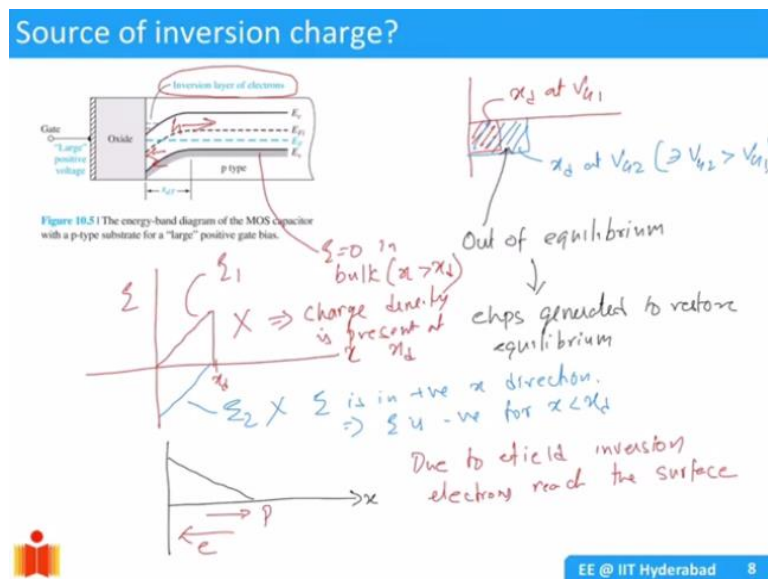 Source of inversion charge?
Inversion layer of electrons
Gate
Oxide
"Large"
positive
voltage
p type
E_c
E_Fi
E_F
E_v
x_dT
Figure 10.5 | The energy-band diagram of the MOS capacitor
with a p-type substrate for a "large" positive gate bias.
h
x_d at V_G1
x_d at V_G2 (∋ V_G2 > V_G1
Out of equilibrium
ehps generated to restore
equilibrium
ξ=0 in
bulk (x > x_d)
ξ
ξ_1
X ⇒ charge density
is present at
x_d
x
x_d
ξ_2 X ξ is in +ve x direction.
⇒ ξ is -ve for x < x_d
Due to efield inversion
electrons reach the surface
x
P
e
EE @ IIT Hyderabad 8